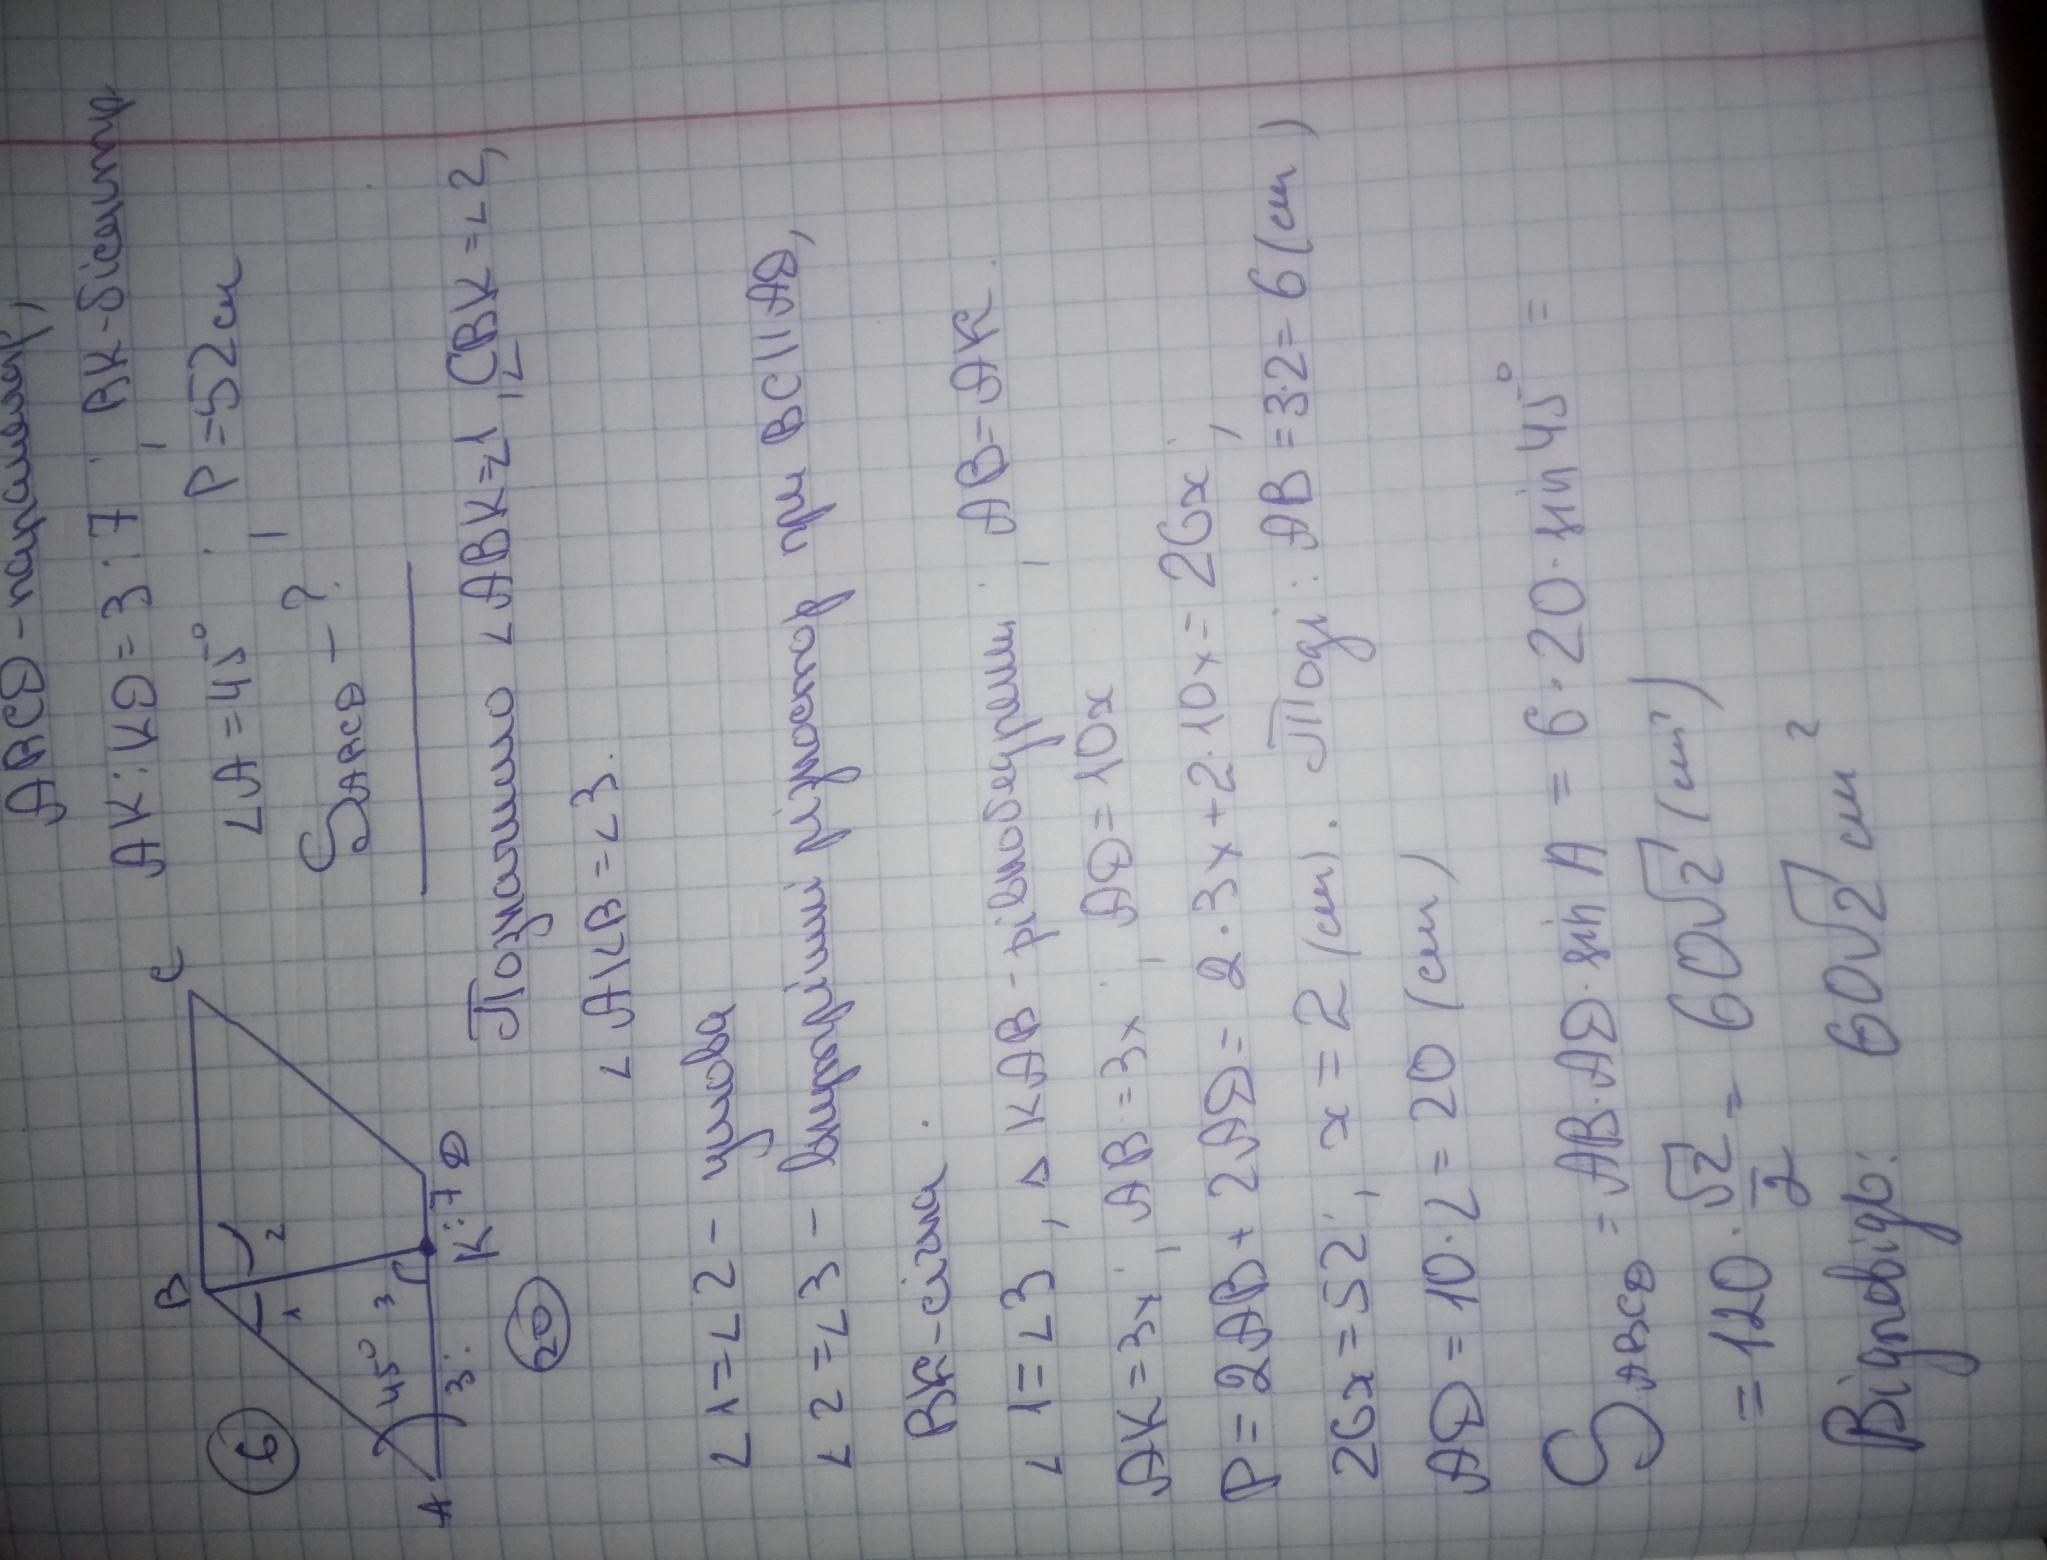 ABCD - паралелогр,
AK:KD = 3:7; BK - бісектр
∠A = 45°; P = 52 см
S ABCD - ?
B
C
1
2
6
45°
3
A
3:
K:7
D
20
Позначимо ∠ABK=∠1, ∠CBK=∠2,
∠AKB=∠3.
∠1=∠2 - умова
∠2=∠3 - внутрішні різностор при BC||AD,
BK-січна.
∠1=∠3, △KAB - рівнобедрений; AB=AK.
AK=3x; AB=3x; AD=10x
P=2AB+2AD=2·3x+2·10x=26x;
26x=52; x=2 (см). Тоді: AB=3·2=6 (см)
AD=10·2=20 (см)
S ABCD = AB·AD·sin A = 6·20·sin 45° =
= 120·√2/2 = 60√2 (см²)
Відповідь: 60√2 см²